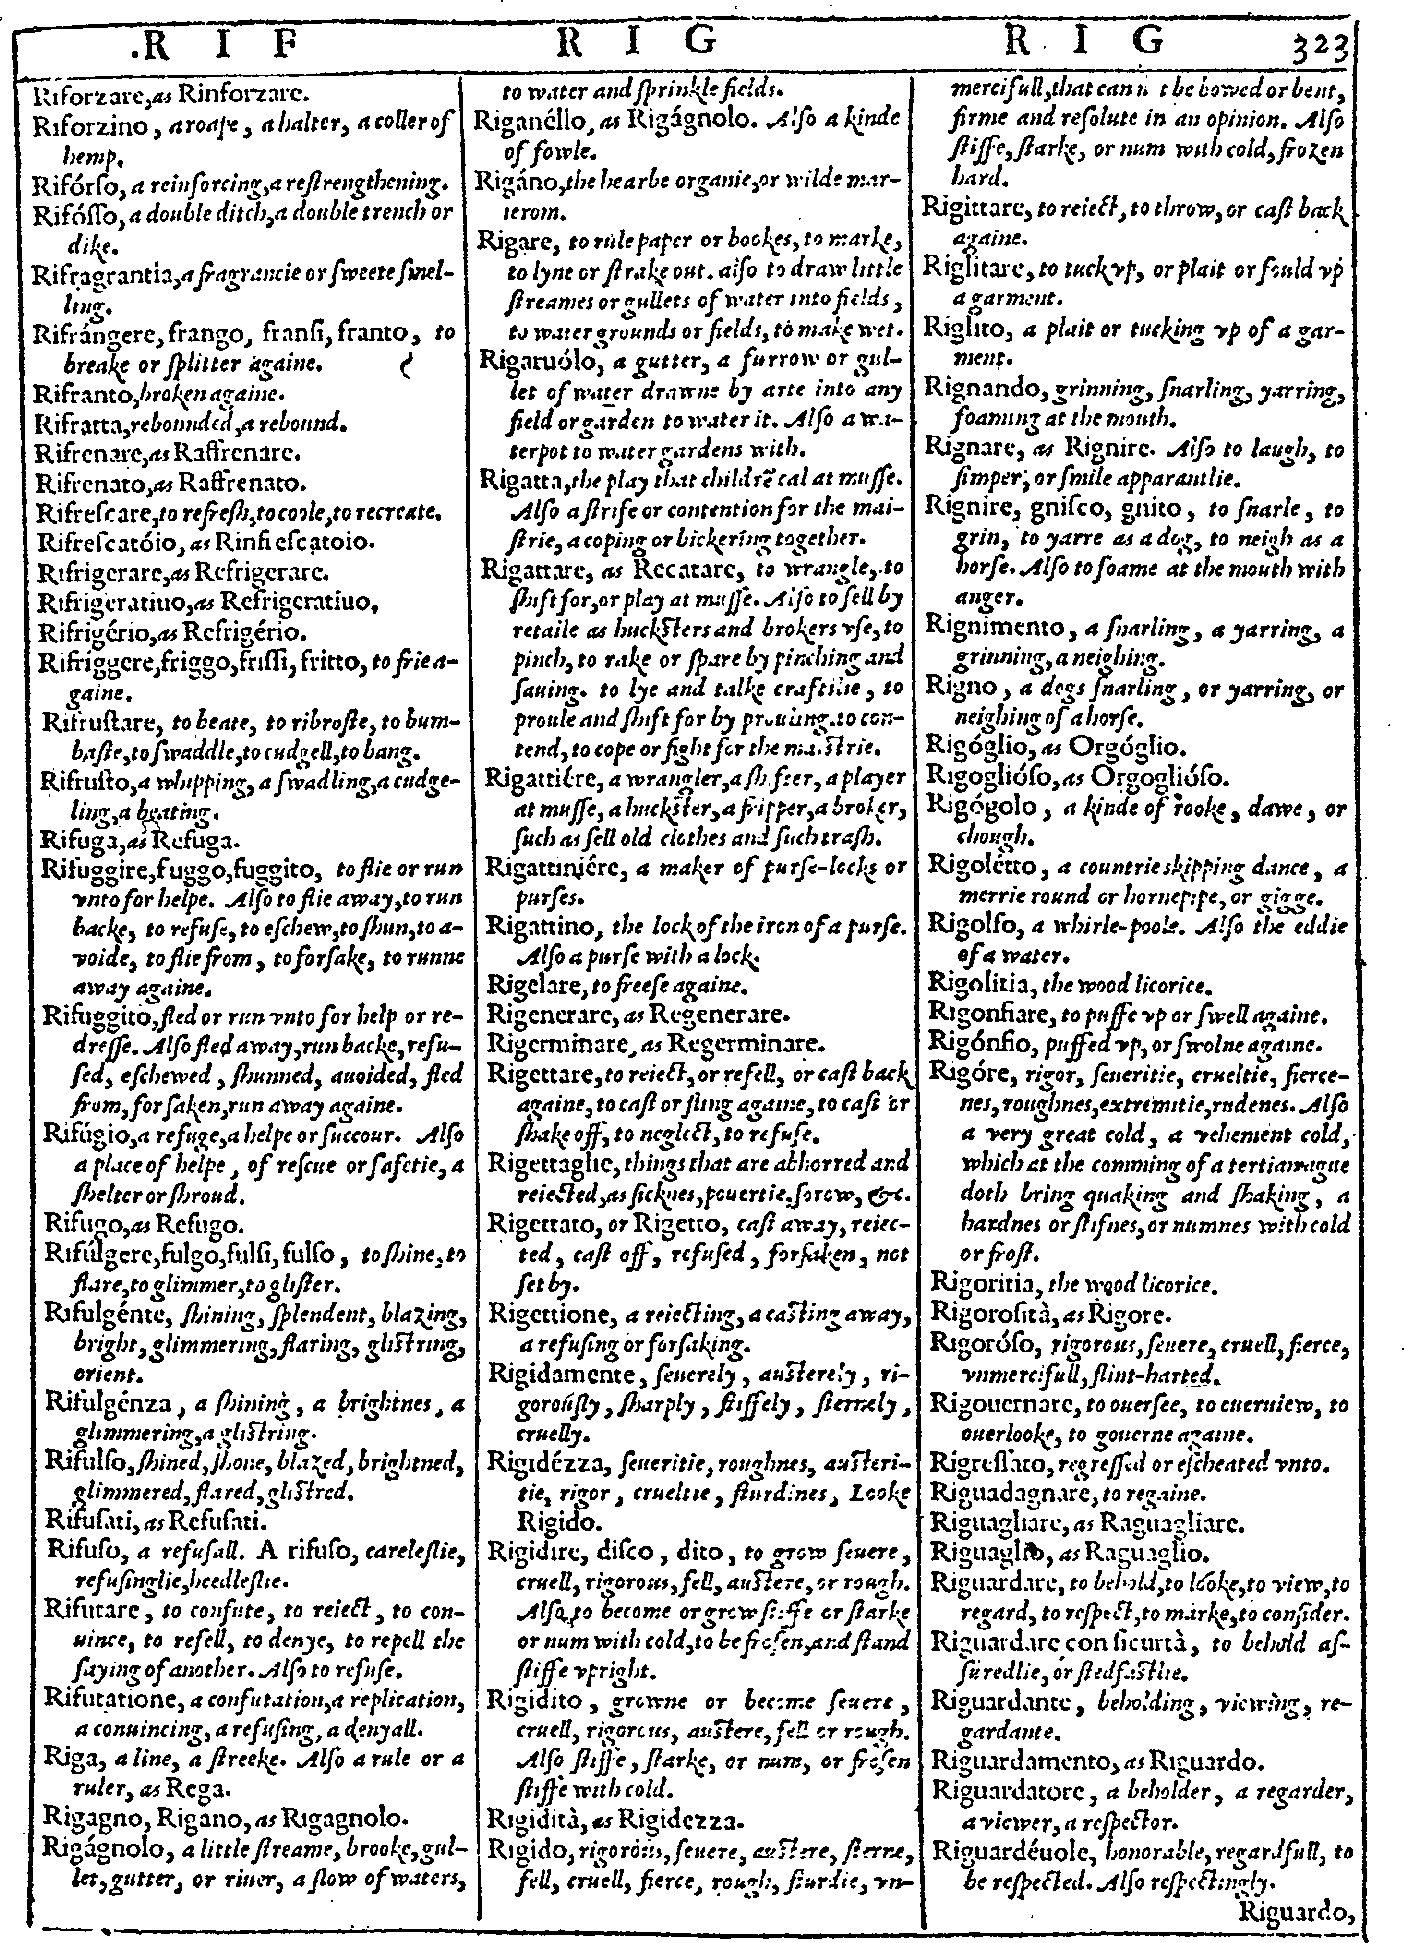 .R I F
R I G
R I G 323
Riforzare, as Rinforzare.
Riforzino, a roape, a halter, a coller of
hemp.
Rifórſo, a reinforcing, a reſtrengthening.
Rifóſſo, a double ditch, a double trench or
dike.
Rifragrantia, a fragrancie or ſweete ſmel-
ling.
Rifrángere, frango, franſi, franto, to
breake or ſplitter againe.
Rifranto, broken againe.
Rifratta, rebounded, a rebound.
Rifrenare, as Raffrenare.
Rifrenato, as Raffrenato.
Rifreſcare, to refreſh, to coole, to recreate.
Rifreſcatóio, as Rinfreſcatoio.
Rifrigerare, as Refrigerare.
Rifrigeratiuo, as Refrigeratiuo,
Rifrigério, as Refrigério.
Rifriggere, friggo, friſſi, fritto, to frie a-
gaine.
Rifruſtare, to beate, to ribroſte, to bum-
baſte, to ſwaddle, to cudgell, to bang.
Rifruſto, a whipping, a ſwadling, a cudge-
ling, a beating.
Rifuga, as Refuga.
Rifuggire, fuggo, fuggito, to flie or run
vnto for helpe. Alſo to flie away, to run
backe, to refuſe, to eſchew, to ſhun, to a-
voide, to flie from, to forſake, to runne
away againe.
Rifuggito, fled or run vnto for help or re-
dreſſe. Alſo fled away, run backe, refu-
ſed, eſchewed, ſhunned, auoided, fled
from, forſaken, run away againe.
Rifúgio, a refuge, a helpe or ſuccour. Alſo
a place of helpe, of reſcue or ſafetie, a
ſhelter or ſhroud.
Rifugo, as Refugo.
Rifúlgere, fulgo, fulſi, fulſo, to ſhine, to
flare, to glimmer, to gliſter.
Rifulgénte, ſhining, ſplendent, blazing,
bright, glimmering, flaring, gliſtring,
orient.
Rifulgénza, a ſhining, a brightnes, a
glimmering, a gliſtring.
Rifulſo, ſhined, ſhone, blazed, brightned,
glimmered, flared, gliſtred.
Rifuſati, as Refuſati.
Rifuſo, a refuſall. A rifuſo, careleſlie,
refuſinglie, heedleſlie.
Rifutare, to confute, to reiect, to con-
uince, to refell, to denye, to repell the
ſaying of another. Alſo to refuſe.
Rifutatione, a confutation, a replication,
a conuincing, a refuſing, a denyall.
Riga, a line, a ſtreeke. Alſo a rule or a
ruler, as Rega.
Rigagno, Rigano, as Rigagnolo.
Rigágnolo, a little ſtreame, brooke, gul-
let, gutter, or riuer, a flow of waters,
to water and ſprinkle fields.
Riganéllo, as Rigágnolo. Alſo a kinde
of fowle.
Rigáno, the hearbe organie, or wilde mar-
ierom.
Rigare, to rule paper or bookes, to marke,
to lyne or ſtrake out. alſo to draw little
ſtreames or gullets of water into fields,
to water grounds or fields, to make wet.
Rigaruólo, a gutter, a furrow or gul-
let of water drawne by arte into any
field or garden to water it. Alſo a wa-
terpot to water gardens with.
Rigatta, the play that childrẽ cal at muſſe.
Alſo a ſtrife or contention for the mai-
ſtrie, a coping or bickering together.
Rigattare, as Recatare, to wrangle, to
ſhift for, or play at muſſe. Alſo to ſell by
retaile as huckſters and brokers vſe, to
pinch, to rake or ſpare by pinching and
ſauing. to lye and talke craftilie, to
proule and ſhift for by prouling. to con-
tend, to cope or fight for the maiſtrie.
Rigattiére, a wrangler, a ſhifter, a player
at muſſe, a huckſter, a fripper, a broker,
ſuch as ſell old clothes and ſuch traſh.
Rigattiniére, a maker of purſe-locks or
purſes.
Rigattino, the lock of the iron of a purſe.
Alſo a purſe with a lock.
Rigelare, to freeſe againe.
Rigenerare, as Regenerare.
Rigerminare, as Regerminare.
Rigettare, to reiect, or refell, or caſt back
againe, to caſt or fling againe, to caſt or
ſhake off, to neglect, to refuſe.
Rigettaglie, things that are abhorred and
reiected, as ſicknes, pouertie, ſorow, &c.
Rigettato, or Rigetto, caſt away, reiec-
ted, caſt off, refuſed, forſaken, not
ſet by.
Rigettione, a reiecting, a caſting away,
a refuſing or forſaking.
Rigidamente, ſeuerely, auſterely, ri-
gorouſly, ſharply, ſtiffely, ſternely,
cruelly.
Rigidézza, ſeueritie, roughnes, auſteri-
tie, rigor, crueltie, ſturdines, Looke
Rigido.
Rigidire, diſco, dito, to grow ſeuere,
cruell, rigorous, fell, auſtere, or rough.
Alſo to become or grow ſtiffe or ſtarke
or num with cold, to be froſen, and ſtand
ſtiffe vpright.
Rigidito, growne or become ſeuere,
cruell, rigorous, auſtere, fell or rough.
Alſo ſtiffe, ſtarke, or num, or froſen
ſtiffe with cold.
Rigidità, as Rigidezza.
Rigido, rigorous, ſeuere, auſtere, ſterne,
fell, cruell, fierce, rough, ſturdie, vn-
mercifull, that can not be bowed or bent,
firme and reſolute in an opinion. Alſo
ſtiffe, ſtarke, or num with cold, frozen
hard.
Rigittare, to reiect, to throw, or caſt back
againe.
Riglitare, to tuck vp, or plait or fould vp
a garment.
Riglito, a plait or tucking vp of a gar-
ment.
Rignando, grinning, ſnarling, yarring,
foaming at the mouth.
Rignare, as Rignire. Alſo to laugh, to
ſimper, or ſmile apparantlie.
Rignire, gniſco, gnito, to ſnarle, to
grin, to yarre as a dog, to neigh as a
horſe. Alſo to foame at the mouth with
anger.
Rignimento, a ſnarling, a yarring, a
grinning, a neighing.
Rigno, a dogs ſnarling, or yarring, or
neighing of a horſe.
Rigóglio, as Orgóglio.
Rigoglióſo, as Orgoglióſo.
Rigógolo, a kinde of rooke, dawe, or
chough.
Rigolétto, a countrie skipping dance, a
merrie round or hornepipe, or gigge.
Rigolſo, a whirle-poole. Alſo the eddie
of a water.
Rigolitia, the wood licorice.
Rigonfiare, to puffe vp or ſwell againe.
Rigónfio, puffed vp, or ſwolne againe.
Rigóre, rigor, ſeueritie, crueltie, fierce-
nes, roughnes, extremitie, rudenes. Alſo
a very great cold, a vehement cold,
which at the comming of a tertian ague
doth bring quaking and ſhaking, a
hardnes or ſtifnes, or numnes with cold
or froſt.
Rigoritia, the wood licorice.
Rigoroſità, as Rigore.
Rigoróſo, rigorous, ſeuere, cruell, fierce,
vnmercifull, flint-harted.
Rigouernare, to ouerſee, to ouerview, to
ouerlooke, to gouerne againe.
Rigreſſato, regreſſed or eſcheated vnto.
Riguadagnare, to regaine.
Riguagliare, as Raguagliare.
Riguaglio, as Raguaglio.
Riguardare, to behold, to looke, to view, to
regard, to reſpect, to marke, to conſider.
Riguardare con ſicurtà, to behold aſ-
ſuredlie, or ſtedfaſtlie.
Riguardante, beholding, viewing, re-
gardante.
Riguardamento, as Riguardo.
Riguardatore, a beholder, a regarder,
a viewer, a reſpector.
Riguardéuole, honorable, regardfull, to
be reſpected. Alſo reſpectingly.
Riguardo,